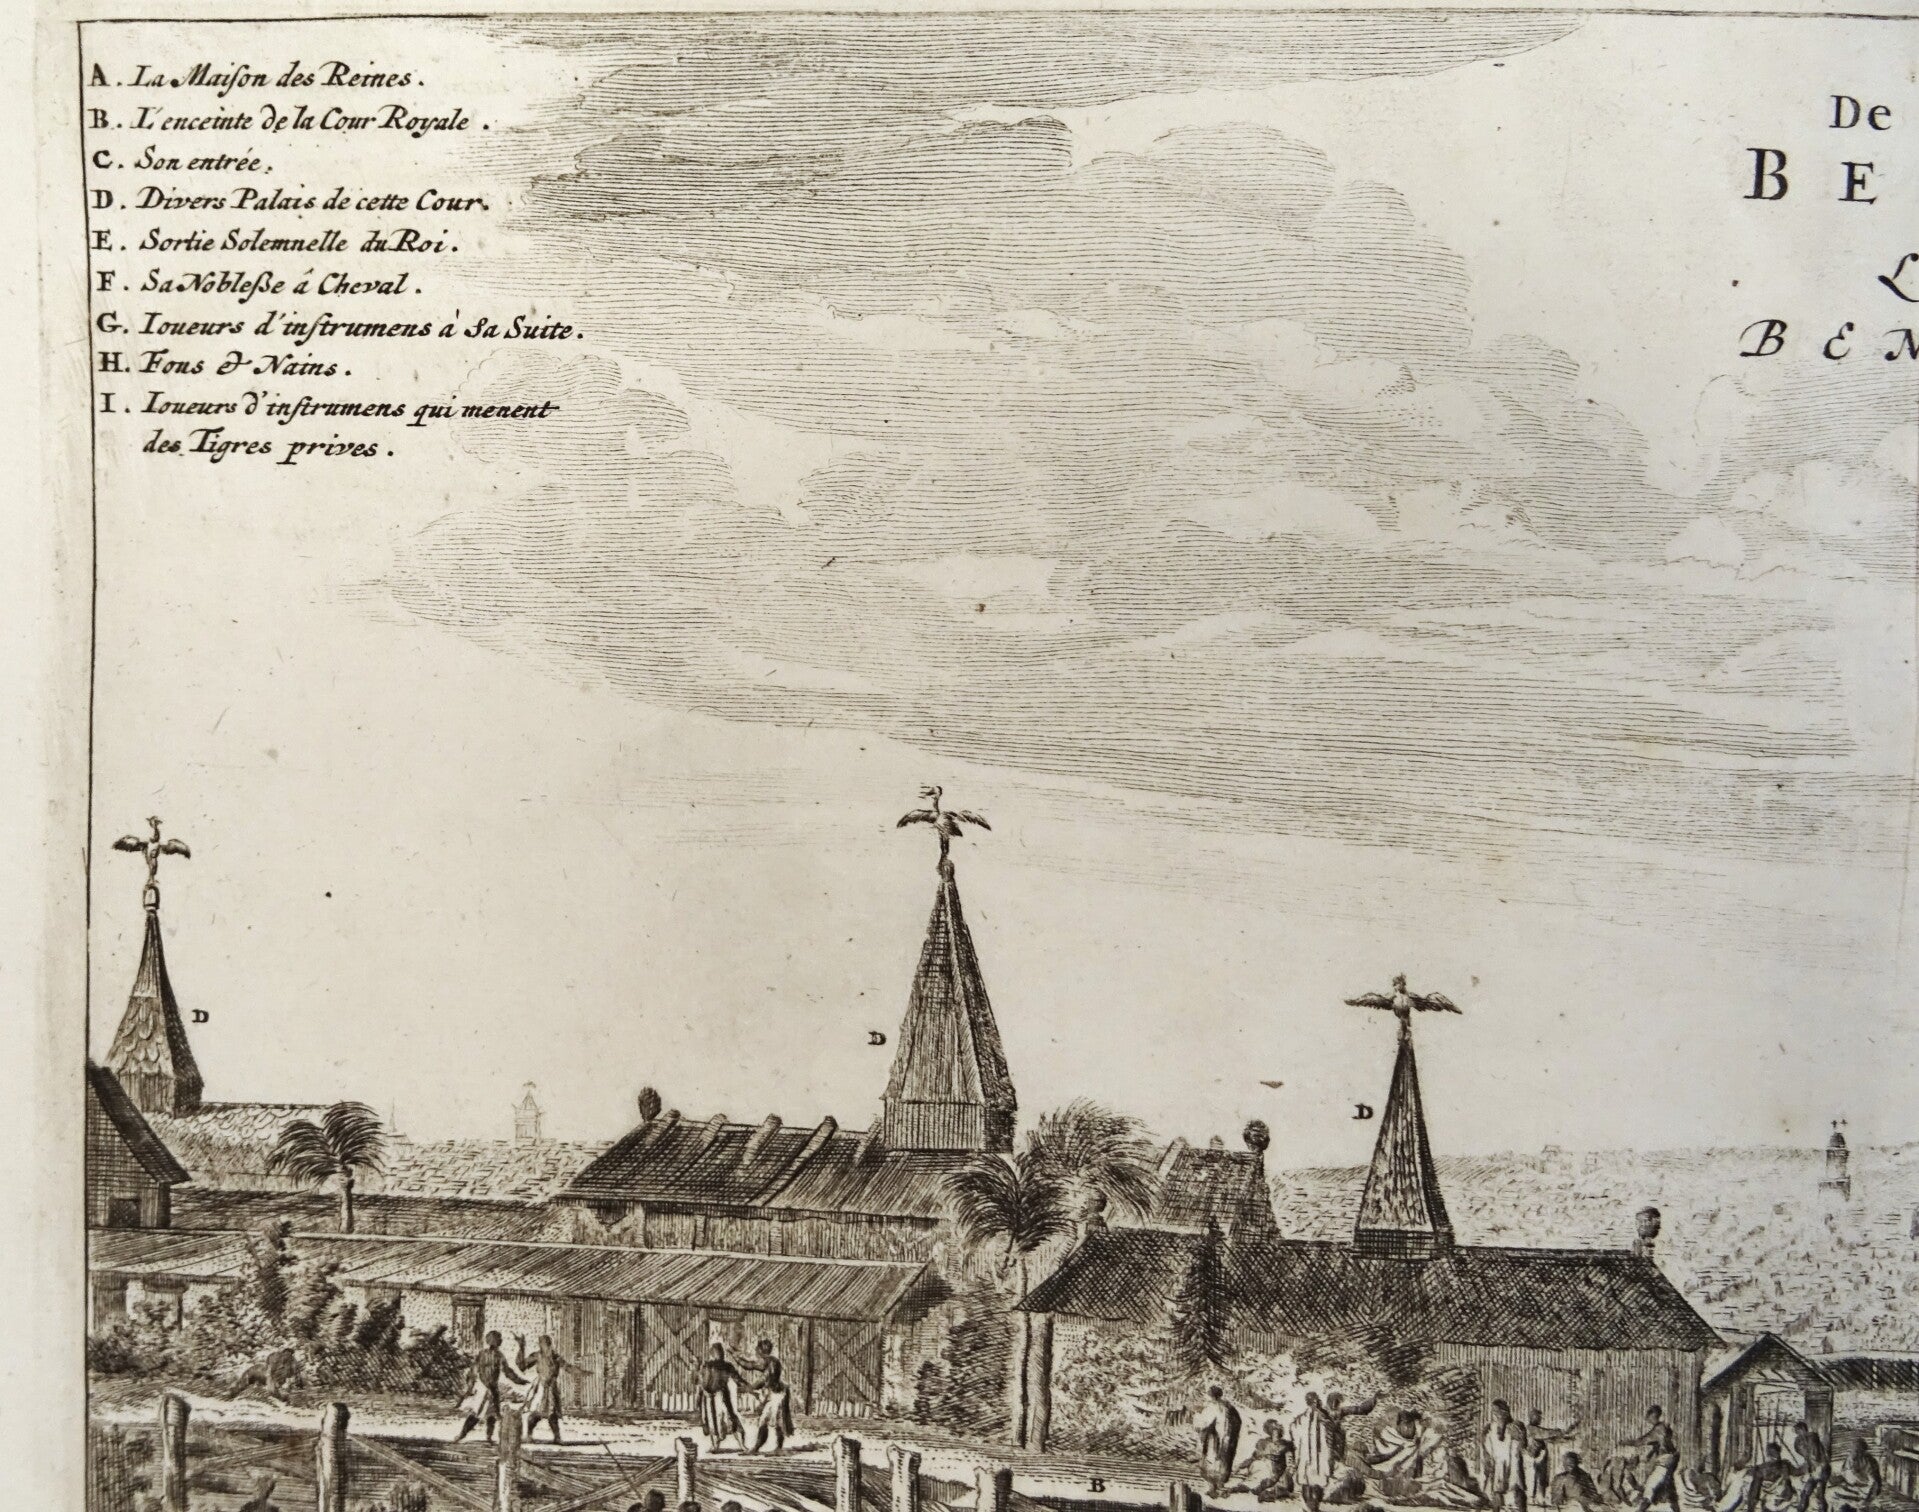 A. La Maiſon des Reines.
B. L'enceinte de la Cour Royale.
C. Son entrée.
D. Divers Palais de cette Cour.
E. Sortie Solemnelle du Roi.
F. Sa Nobleſse á Cheval.
G. Ioueurs d'inſtrumens à Sa Suite.
H. Fous & Nains.
I. Ioueurs d'inſtrumens qui menent
des Tigres prives.
De
BE
L
BEN
D
D
D
B